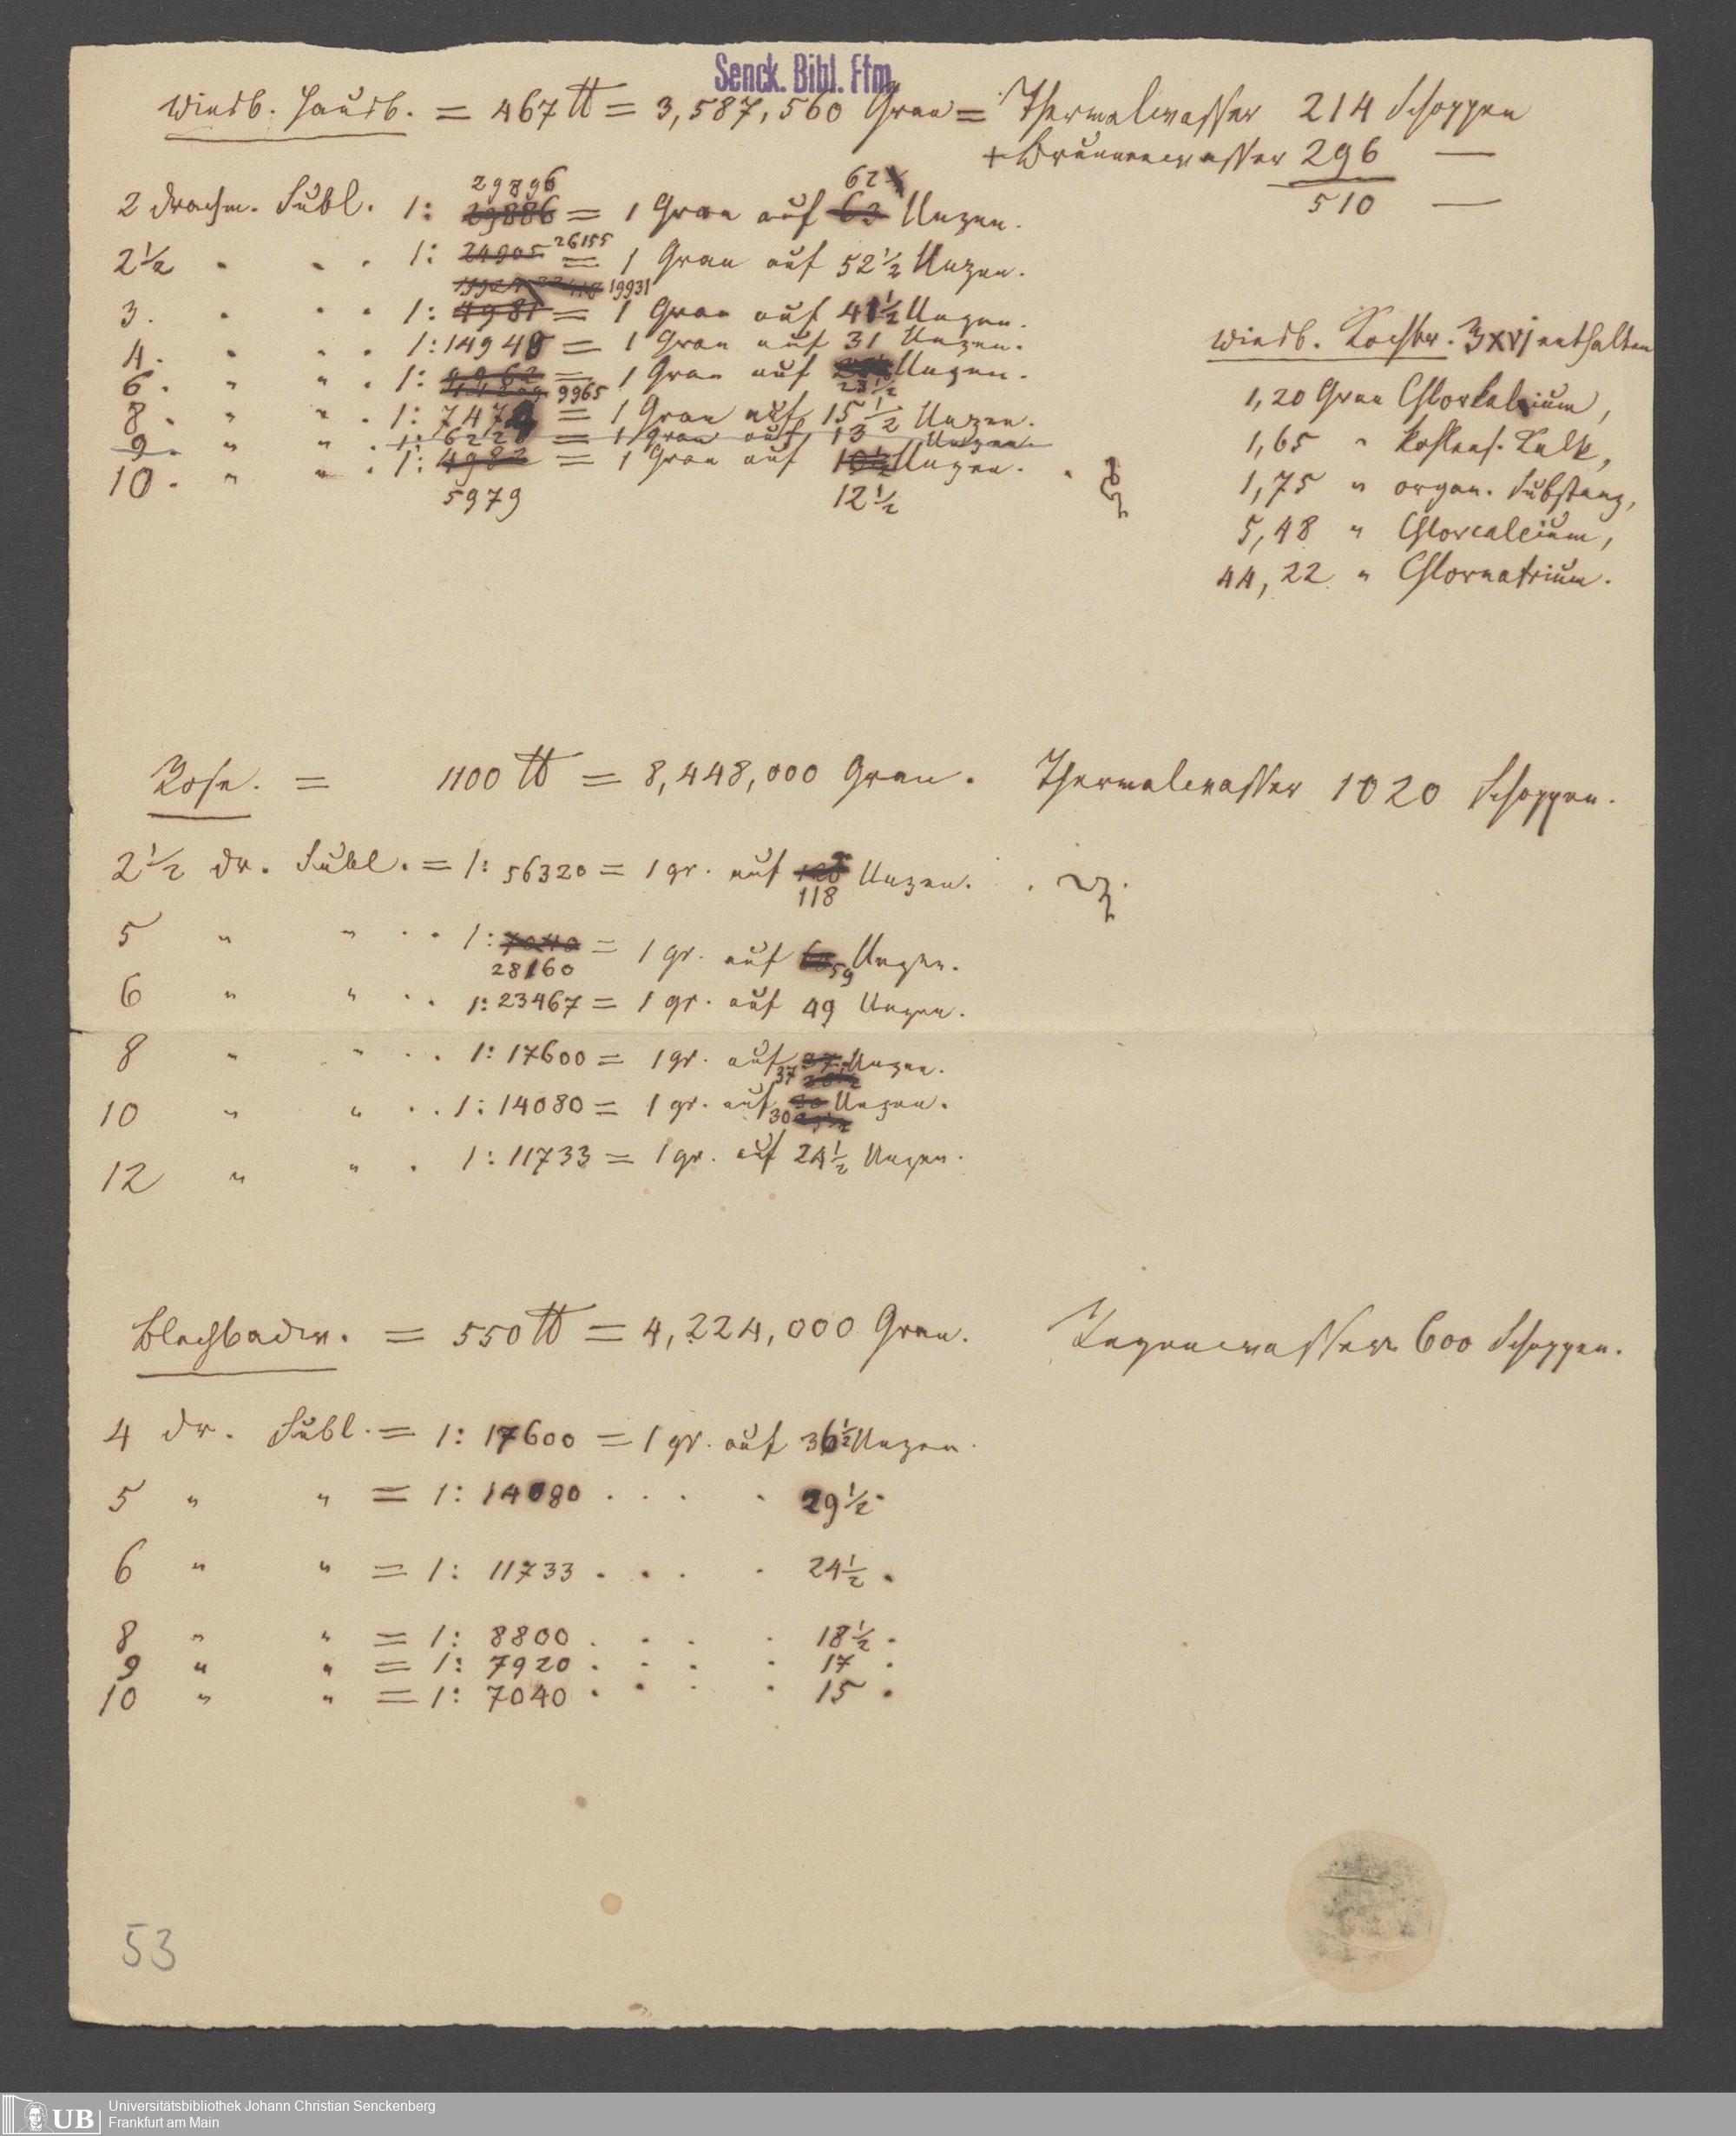 Senck. Bibl. Ffm.
Wiesb. Hausb. = 467 ℔ = 3,587,560 Gran = Thermalwasser 214 Schoppen
+ Brunnenwasser 296 —
510 —
29896 62
2 Drachm. Subl. 1: 29886 = 1 Gran auf 63 Unzen.
2½ " " . 1: 24905 26155 = 1 Gran auf 52½ Unzen.
19931
3. " " . 1: 4981 = 1 Gran auf 41½ Unzen.
4. " " . 1: 14948 = 1 Gran auf 31 Unzen.
6. " " . 1: 9965 = 1 Gran auf 23½ Unzen.
8. " " . 1: 7474 = 1 Gran auf 15½ Unzen.
9. " " . 1: 622 = 1 Gran auf 13 Unzen.
10. " " . 1: 4982 = 1 Gran auf 10½ Unzen.
5979 12½
Wiesb. Kochbr. ℥xvj enthalten
1,20 Gran Chlorkalium,
1,65 " kohlens. Kalk,
1,75 " organ. Substanz,
5,48 " Chlorcalcium,
44,22 " Chlornatrium.
Rose. = 1100 ℔ = 8,448,000 Gran. Thermalwasser 1020 Schoppen.
2½ dr. Subl. = 1: 56320 = 1 gr. auf Unzen.
118
5 " " . . 1: 7040 = 1 gr. auf 59 Unzen.
28160
6 " " . . 1: 23467 = 1 gr. auf 49 Unzen.
8 " " . . 1: 17600 = 1 gr. auf 37 Unzen.
10 " " . . 1: 14080 = 1 gr. auf 30 Unzen.
12 " " . 1: 11733 = 1 gr. auf 24½ Unzen.
Blechbadew. = 550 ℔ = 4,224,000 Gran. Regenwasser 600 Schoppen.
4 dr. Subl. = 1: 17600 = 1 gr. auf 36½ Unzen.
5 " " = 1: 14080 . . . . 29½ .
6 " " = 1: 11733 . . . . 24½ .
8 " " = 1: 8800 . . . . 18½ .
9 " " = 1: 7920 . . . . 17 .
10 " " = 1: 7040 . . . . 15 .
53
UB
Universitätsbibliothek Johann Christian Senckenberg
Frankfurt am Main